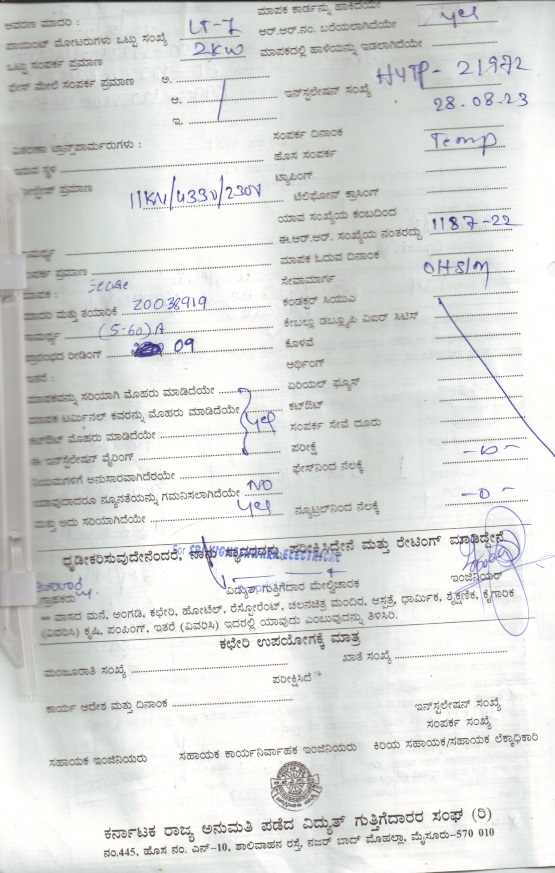 ಆವರಣ ಮಾದರಿ : LT-7 ಮಾಪಕ ಕಾರ್ಡನ್ನು ಹಾಕಿದೆಯೇ Yes
ಪಾಯಿಂಟ್ ಮೋಟರುಗಳು ಒಟ್ಟು ಸಂಖ್ಯೆ ಆರ್.ಆರ್.ನಂ. ಬರೆಯಲಾಗಿದೆಯೇ
ಒಟ್ಟು ಸಂಪರ್ಕ ಪ್ರಮಾಣ 2KW ಮಾಪಕದಲ್ಲಿ ಹಾಳೆಯನ್ನು ಇಡಲಾಗಿದೆಯೇ
ಫೇಸ್ ಮೇಲೆ ಸಂಪರ್ಕ ಪ್ರಮಾಣ ಅ. ಇನ್‌ಸ್ಟಲೇಷನ್ ಸಂಖ್ಯೆ HYTP-21972
ಆ.
ಇ. ಸಂಪರ್ಕ ದಿನಾಂಕ 28.08.23
ವಿತರಣಾ ಟ್ರಾನ್ಸ್‌ಫಾರ್ಮರುಗಳು : ಹೊಸ ಸಂಪರ್ಕ Temp
ಇರುವ ಸ್ಥಳ ಟ್ಯಾಪಿಂಗ್
ಪ್ರಮಾಣ 11KV/433V/230V ಟೆಲಿಫೋನ್ ಕ್ರಾಸಿಂಗ್
ಯಾವ ಸಂಖ್ಯೆಯ ಕಂಬದಿಂದ
ಸಾಮರ್ಥ್ಯ ಈ.ಆರ್.ಆರ್. ಸಂಖ್ಯೆಯ ನಂತರದ್ದು 1187-22
ಸಂಪರ್ಕ ಪ್ರಮಾಣ ಮಾಪಕ ಓದುವ ದಿನಾಂಕ
ಮಾಪಕ : Secure ಸೇವಾಮಾರ್ಗ OHSM
ಮಾದರಿ ಮತ್ತು ತಯಾರಿಕೆ 20038919 ಕಂಡಕ್ಟರ್ ಸಿಯುಎ
ಸಾಮರ್ಥ್ಯ (5-60)A ಕೇಬಲ್ಲು ಡಬ್ಲ್ಯೂಪಿ ವಿಐಆರ್ ಸಿಟಿಸ್
ಪ್ರಾರಂಭದ ರೀಡಿಂಗ್ 09 ಕೊಳವೆ
ಇತರೆ : ಅರ್ಥಿಂಗ್
ಮಾಪಕವನ್ನು ಸರಿಯಾಗಿ ಮೊಹರು ಮಾಡಿದೆಯೇ ಏರಿಯಲ್ ಫ್ಯೂಸ್
ಮಾಪಕ ಟರ್ಮಿನಲ್ ಕವರನ್ನು ಮೊಹರು ಮಾಡಿದೆಯೇ Yes ಕಟ್‌ಔಟ್
ಕಟ್‌ಔಟ್ ಮೊಹರು ಮಾಡಿದೆಯೇ ಸಂಪರ್ಕ ಸೇವೆ ದೂರು
ಈ ಇನ್‌ಸ್ಟಲೇಷನ್ ವೈರಿಂಗ್ ಪರೀಕ್ಷೆ
ನಿಯಮಗಳಿಗೆ ಅನುಸಾರವಾಗಿದೆಯೇ ಫೇಸ್‌ನಿಂದ ನೆಲಕ್ಕೆ -0-
ಯಾವುದಾದರೂ ನ್ಯೂನತೆಯನ್ನು ಗಮನಿಸಲಾಗಿದೆಯೇ NO
ಮತ್ತು ಅದು ಸರಿಯಾಗಿದೆಯೇ Yes ನ್ಯೂಟ್ರಲ್‌ನಿಂದ ನೆಲಕ್ಕೆ -0-
ಧೃಡೀಕರಿಸುವುದೇನೆಂದರೆ, ನಾನು ಪರೀಕ್ಷಿಸಿದ್ದೇನೆ ಮತ್ತು ರೇಟಿಂಗ್ ಮಾಡಿದ್ದೇನೆ
ಗ್ರಾಹಕರು ವಿದ್ಯುತ್ ಗುತ್ತಿಗೆದಾರ ಮೇಲ್ವಿಚಾರಕ ಇಂಜಿನಿಯರ್
** ವಾಸದ ಮನೆ, ಅಂಗಡಿ, ಕಛೇರಿ, ಹೋಟೆಲ್, ರೆಸ್ಟೋರೆಂಟ್, ಚಲನಚಿತ್ರ ಮಂದಿರ, ಆಸ್ಪತ್ರೆ, ಧಾರ್ಮಿಕ, ಶೈಕ್ಷಣಿಕ, ಕೈಗಾರಿಕ
(ವಿವರಿಸಿ) ಕೃಷಿ, ಪಂಪಿಂಗ್, ಇತರೆ (ವಿವರಿಸಿ) ಇದರಲ್ಲಿ ಯಾವುದು ಎಂಬುವುದನ್ನು ತಿಳಿಸಿರಿ.
ಕಛೇರಿ ಉಪಯೋಗಕ್ಕೆ ಮಾತ್ರ
ಮಂಜೂರಾತಿ ಸಂಖ್ಯೆ ಖಾತೆ ಸಂಖ್ಯೆ
ಪರೀಕ್ಷಿಸಿದೆ
ಕಾರ್ಯ ಆದೇಶ ಮತ್ತು ದಿನಾಂಕ ಇನ್‌ಸ್ಟಲೇಷನ್ ಸಂಖ್ಯೆ
ಸಂಪರ್ಕ ಸಂಖ್ಯೆ
ಸಹಾಯಕ ಇಂಜಿನಿಯರು ಸಹಾಯಕ ಕಾರ್ಯನಿರ್ವಾಹಕ ಇಂಜಿನಿಯರು ಕಿರಿಯ ಸಹಾಯಕ/ಸಹಾಯಕ ಲೆಕ್ಕಾಧಿಕಾರಿ
ಕರ್ನಾಟಕ ರಾಜ್ಯ ಅನುಮತಿ ಪಡೆದ ವಿದ್ಯುತ್ ಗುತ್ತಿಗೆದಾರರ ಸಂಘ (ರಿ)
ನಂ.445, ಹೊಸ ನಂ. ಎನ್-10, ಶಾಲಿವಾಹನ ರಸ್ತೆ, ನಜರ್ ಬಾದ್ ಮೊಹಲ್ಲಾ, ಮೈಸೂರು-570 010